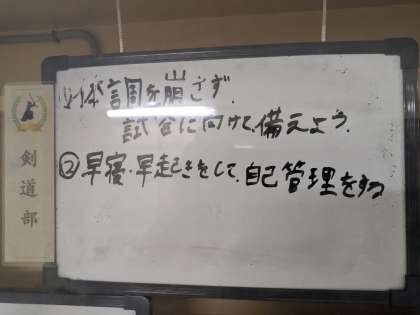 剣道部
①体調を崩さず、
試合に向けて、備えよう、
②早寝・早起きをして、自己管理をする